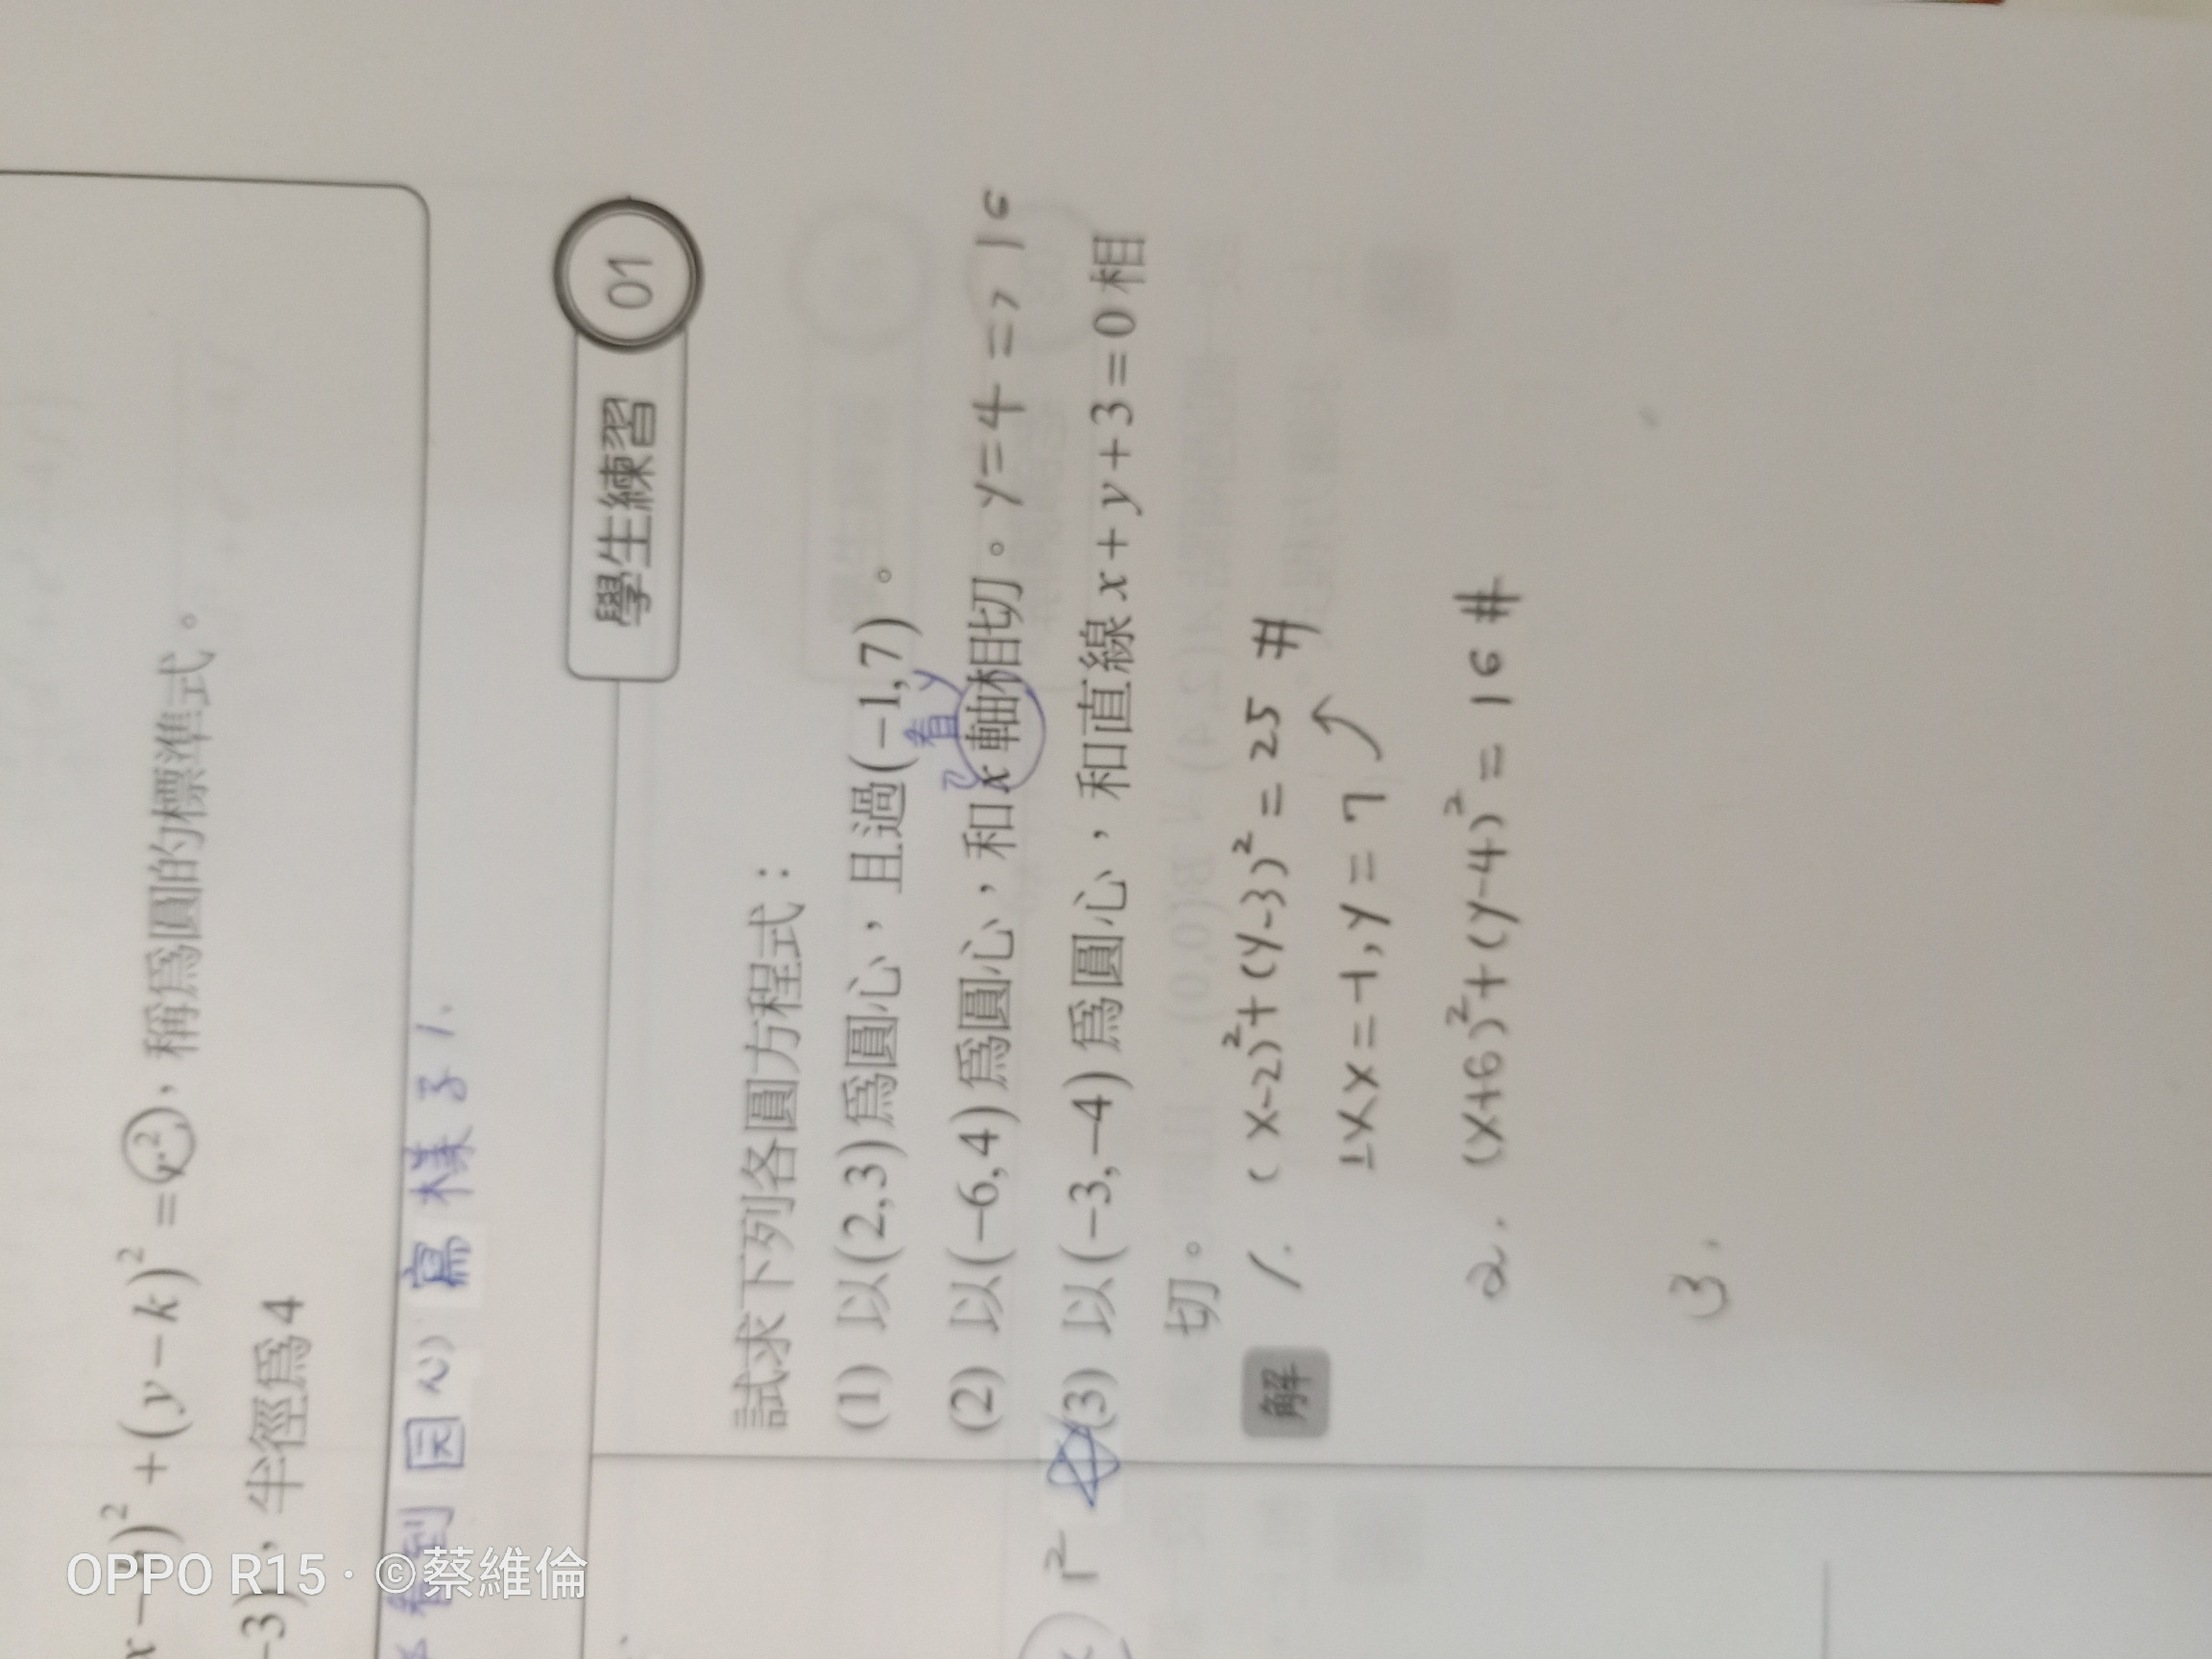 )² + (y − k)² = r², 稱為圓的標準式。
−3), 半徑為 4
看到 圆心 寫 樣子 1.
學生練習 01
試求下列各圓方程式:
(1) 以(2,3)為圓心,且過(−1,7)。
看 y
(2) 以(−6,4)為圓心,和x軸相切。y=4 => 16
(3) 以(−3,−4)為圓心,和直線 x + y + 3 = 0 相
切。
r²
解 1. (x-2)²+(y-3)²=25 #
x=-1, y=7
2. (x+6)²+(y-4)²=16 #
3.
OPPO R15 · ©蔡維倫